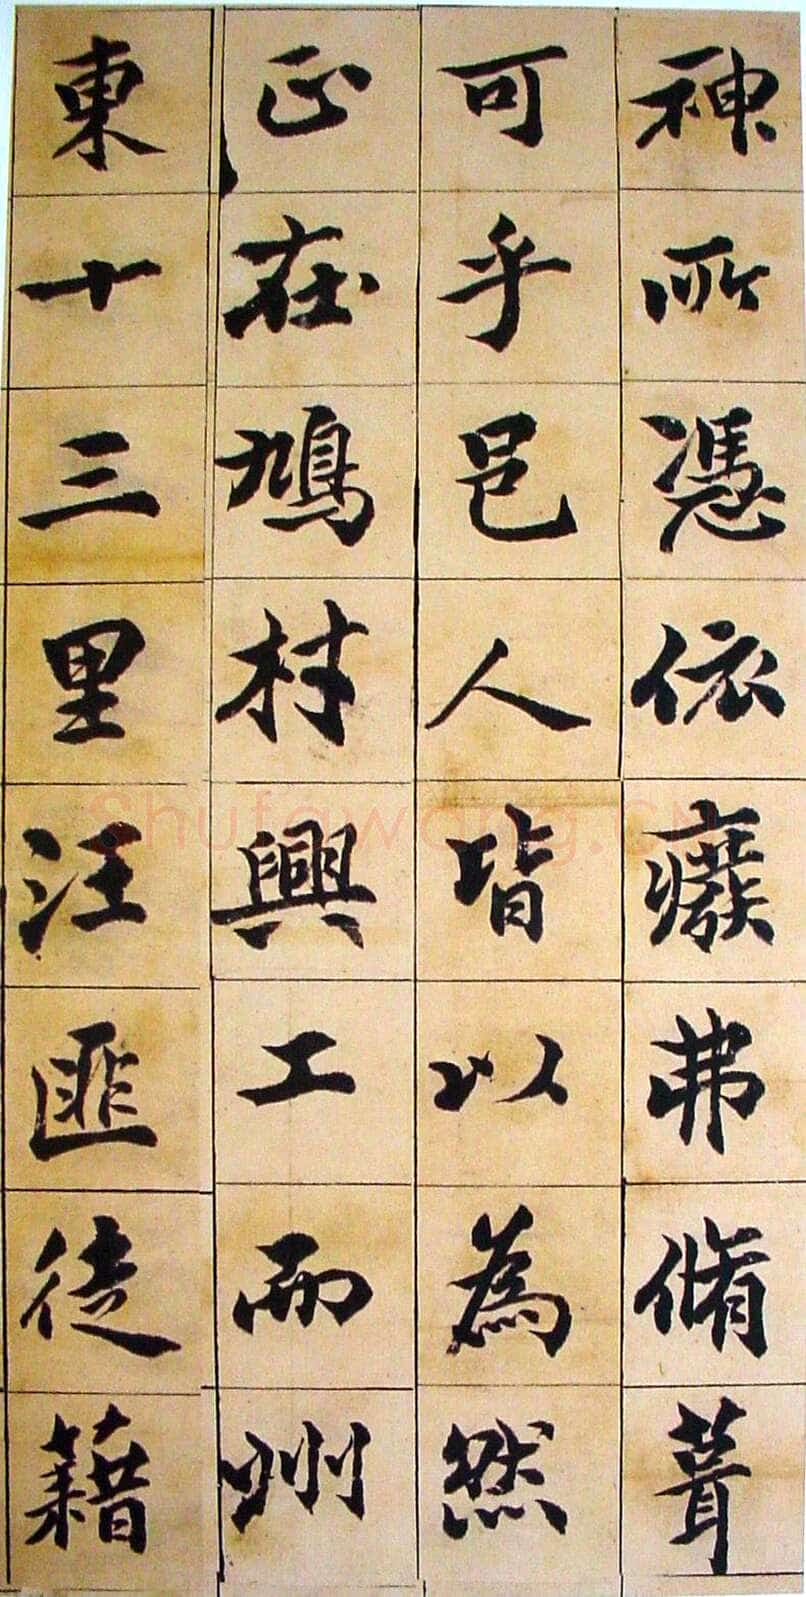 神所憑依癈弗脩葺
可乎邑人皆以為然
正在鳩材興工而州
東十三里汪匪徒藉
shufawang.cn